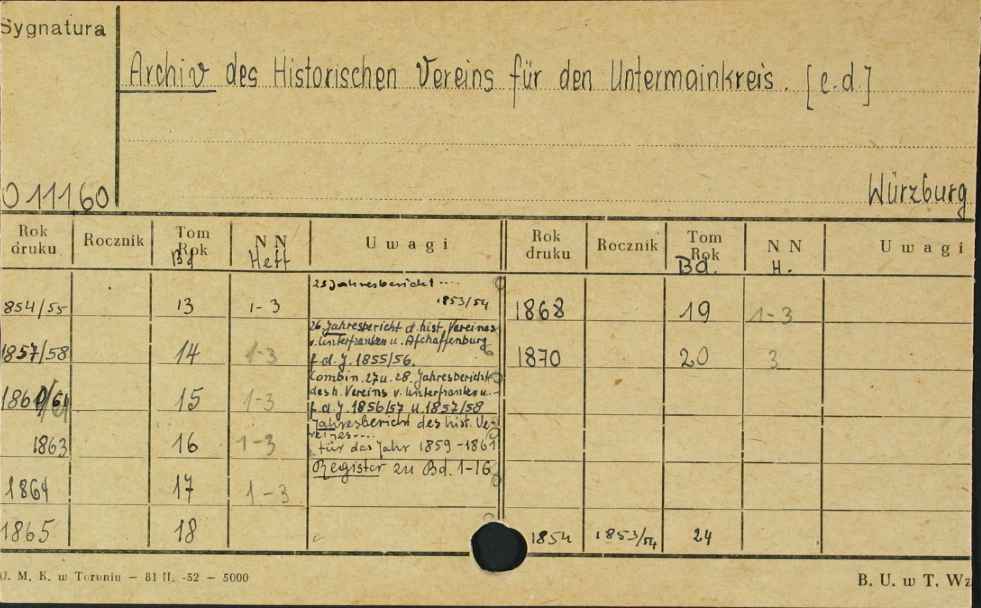 Sygnatura
Archiv des Historischen Vereins für den Untermainkreis. [e.d.]
O 11160
Würzburg
Rok druku Rocznik Tom Rok Bd NN Heft Uwagi Rok druku Rocznik Tom Rok Bd. NN H. Uwagi
23 Jahresbericht ....
854/55 13 1-3 1853/54 1868 19 1-3
26. Jahresbericht d. hist. Vereines
v. Unterfranken u. Aschaffenburg
1857/58 14 1-3 f. d. J. 1855/56. 1870 20 3
Combin. 27 u. 28. Jahresbericht
des h. Vereins v. Unterfranken u. -
1860/61 15 1-3 f. d. J. 1856/57 u. 1857/58
Jahresbericht des hist. Ve-
reines ....
1863 16 1-3 für das Jahr 1859-1861
Register zu Bd. 1-16
1864 17 1-3
1865 18 1854 1853/54 24
U. M. K. w Toruniu — 81 II. -52 — 5000 B. U. w T. Wz